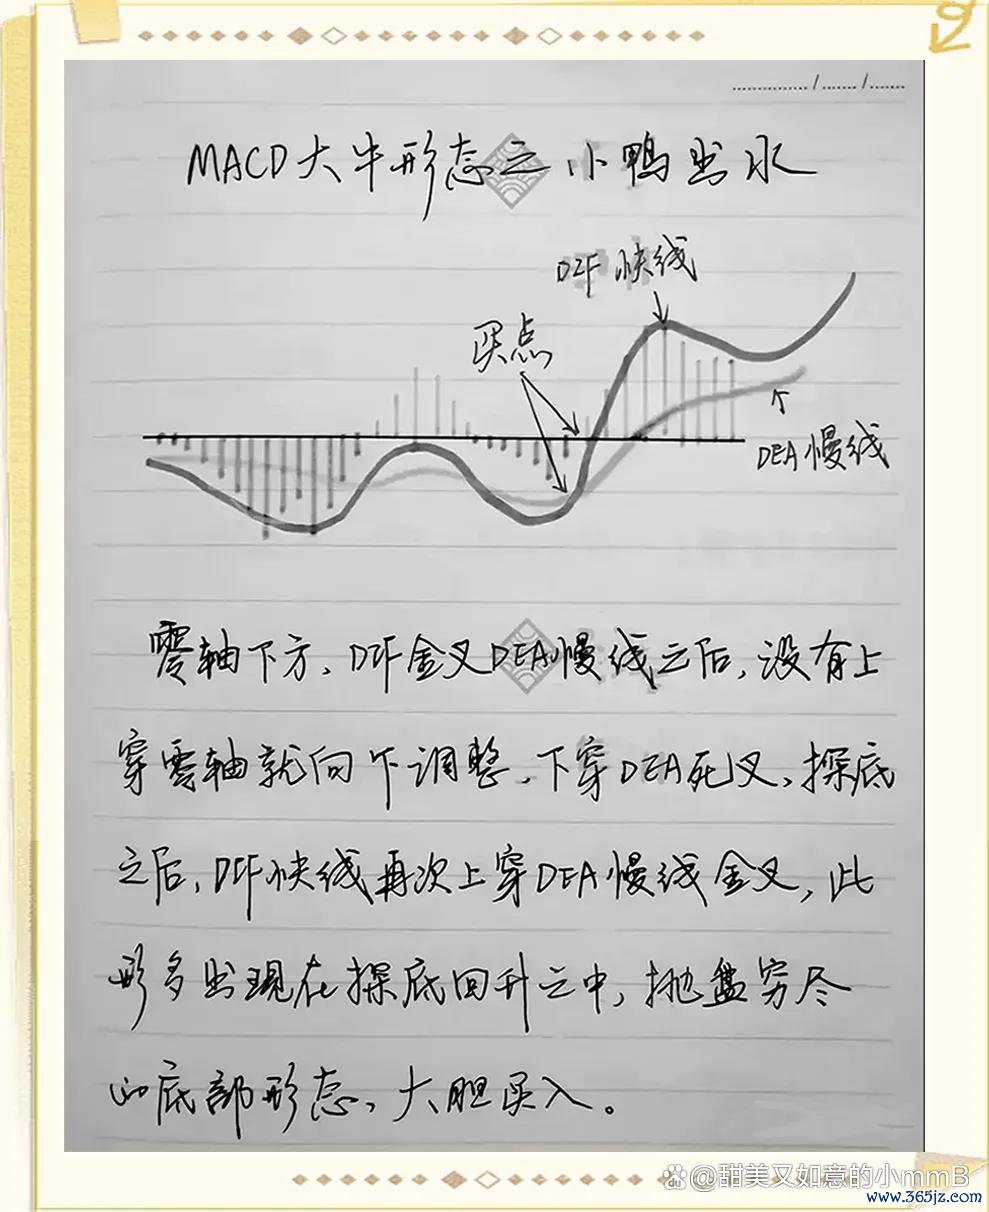 MACD大牛形态之小鸭出水
DIF快线
买点
DEA慢线
零轴下方,DIF金叉DEA慢线之后,没有上
穿零轴就向下调整,下穿DEA死叉,探底
之后,DIF快线再次上穿DEA慢线金叉,此
形多出现在探底回升之中,抛盘穷尽
的底部形态,大胆买入。
@甜美又如意的小mmB
www.365jz.com